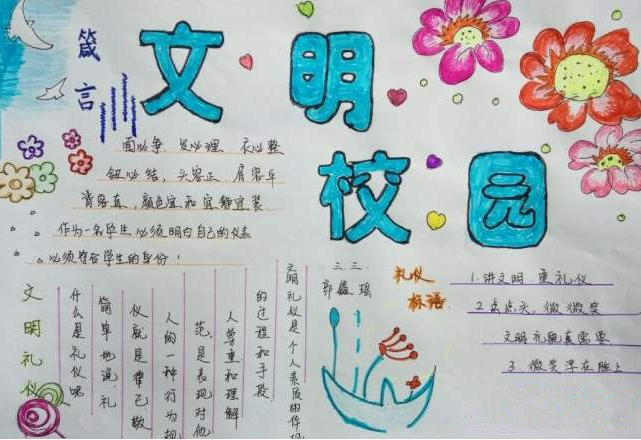 文明
校园
箴言
面必争 发必理 衣必整
钮必结，头容正 肩容平
背容直，颜色宜和宜静宜装
作为一名学生必须明白自己的仪表
必须符合学生的身份！
文明礼仪
什么是礼仪呢
简单地说，礼
仪就是律己敬
人的一种行为规
范，是表现对他
人尊重和理解
的过程和手段
文明礼仪是个人素质的体现
三.三
郭
瑶
礼仪
标语
1.讲文明 重礼仪
2.点点头，微微笑
文明礼貌真需要
3.微笑浮在脸上